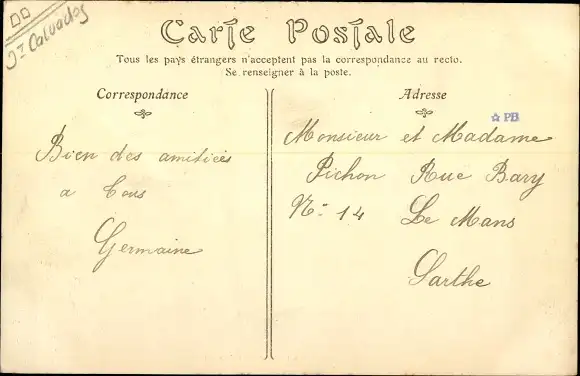 Jt Calvados
Carte Postale
Tous les pays étrangers n'acceptent pas la correspondance au recto.
Se renseigner à la poste.
Correspondance
Bien des amitiées
a tous
Germaine
Adresse
PB
Monsieur et Madame
Pichon Rue Bary
No 14 Le Mans
Sarthe